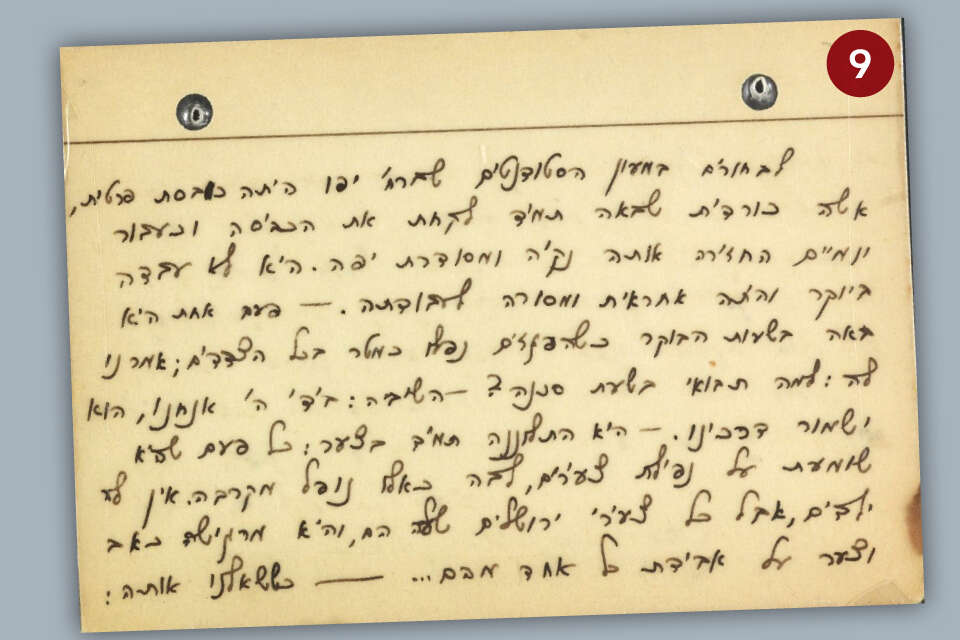 9
לבחורים במעון הסטודנטים שברח' יפו היתה כובסת פרטית,
אשה כורדית שבאה תמיד לקחת את הכביסה וכעבור
יומיים החזירה אותה נקיה ומסודרת יפה. היא לא עבדה
ביוקר והיתה אחראית ומסורה לעבודתה. — פעם אחת היא
באה בשעות הבוקר כשהפגזים נפלו כמטר בכל הצדדים; אמרנו
לה: למה תבואי בשעת סכנה? — השיבה: בידי ה' אנחנו, הוא
ישמור דרכינו. — היא התלוננה תמיד בצער: כל פעם שהיא
שומעת על נפילת צעירים, לבה כאילו נופל מקרבה. אין לה
ילדים, אבל כל צעירי ירושלים שלה הם, והיא מרגישה כאב
וצער על אבידת כל אחד מהם... — כששאלנו אותה: